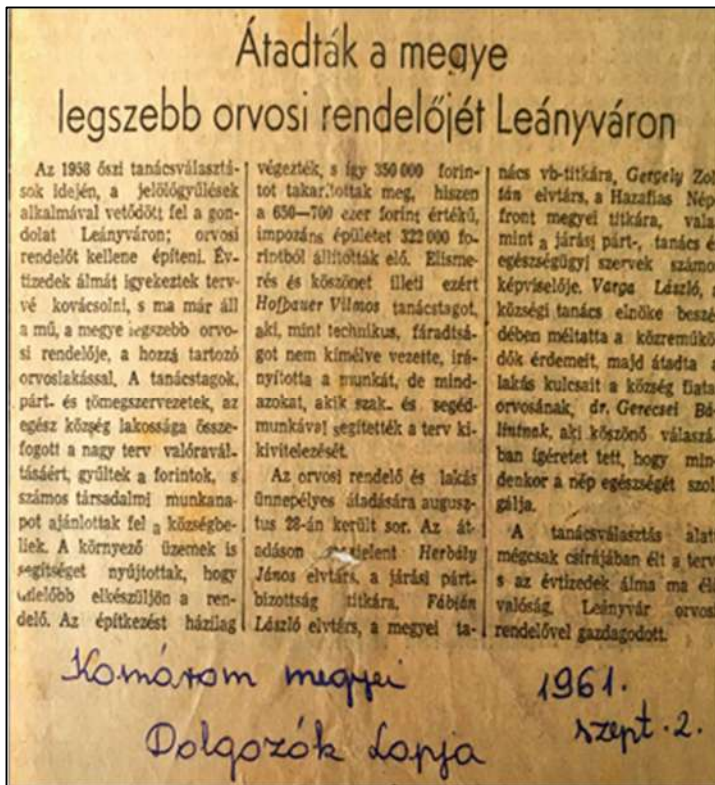 Átadták a megye
legszebb orvosi rendelőjét Leányváron
Az 1958 őszi tanácsválasztá-
sok idején, a jelölőgyűlések
alkalmával vetődött fel a gon-
dolat Leányváron; orvosi
rendelőt kellene építeni. Év-
tizedek álmát igyekeztek terv-
vé kovácsolni, s ma már áll
a mű, a megye legszebb orvo-
si rendelője, a hozzá tartozó
orvoslakással. A tanácstagok,
párt- és tömegszervezetek, az
egész község lakossága össze-
fogott a nagy terv valóravál-
tásáért, gyűltek a forintok, s
számos társadalmi munkana-
pot ajánlottak fel a községbe-
liek. A környező üzemek is
segítséget nyújtottak, hogy
mielőbb elkészüljön a ren-
delő. Az építkezést házilag
végezték, s így 350 000 forin-
tot takarítottak meg, hiszen
a 650—700 ezer forint értékű,
impozáns épületet 322 000 fo-
rintból állították elő. Elisme-
rés és köszönet illeti ezért
Hofbauer Vilmos tanácstagot,
aki, mint technikus, fáradtsá-
got nem kímélve vezette, irá-
nyította a munkát, de mind-
azokat, akik szak- és segéd-
munkával segítették a terv ki-
kivitelezését.
Az orvosi rendelő és lakás
ünnepélyes átadására augusz-
tus 28-án került sor. Az át-
adáson megjelent Herbály
János elvtárs, a járási párt-
bizottság titkára, Fábián
László elvtárs, a megyei ta-
nács vb-titkára, Gergely Zol-
tán elvtárs, a Hazafias Nép-
front megyei titkára, vala-
mint a járási párt-, tanács é
egészségügyi szervek számo
képviselője. Varga László,
községi tanács elnöke beszé
dében méltatta a közreműkö
dők érdemeit, majd átadta a
lakás kulcsait a község fiata
orvosának, dr. Gerecsei Bá-
lintnak, aki köszönő válaszá-
ban ígéretet tett, hogy min-
denkor a nép egészségét szol
gálja.
A tanácsválasztás alatt
mégcsak csírájában élt a terv
s az évtizedek álma ma élő
valóság. Leányvár orvosi
rendelővel gazdagodott.
Komárom megyei
Dolgozók Lapja
1961.
szept. 2.